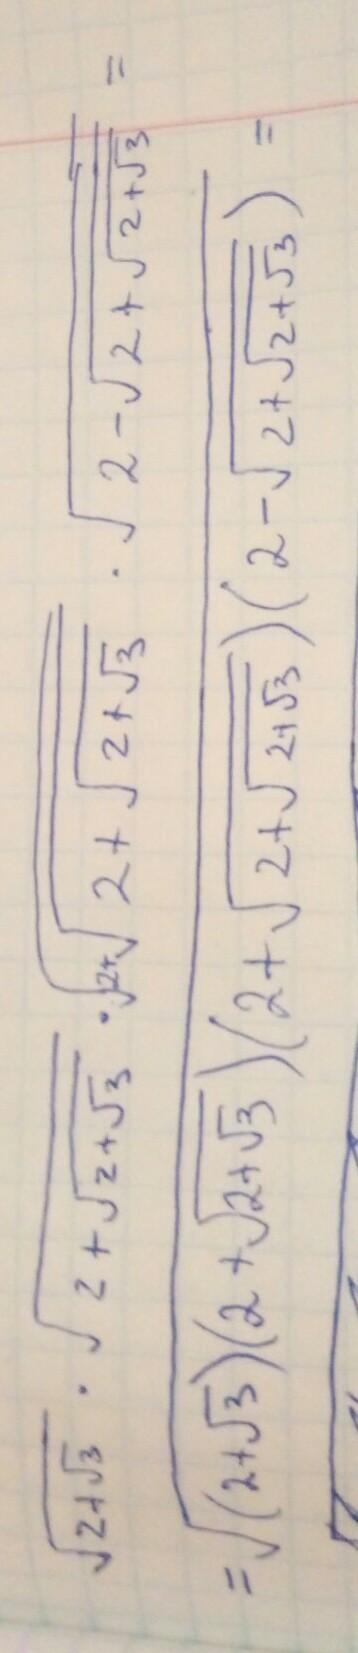 √(2+√3) · √(2+√(2+√3)) · √(2+√(2+√(2+√3))) · √(2-√(2+√(2+√3))) =
= √((2+√3)(2+√(2+√3))(2+√(2+√(2+√3)))(2-√(2+√(2+√3)))) =